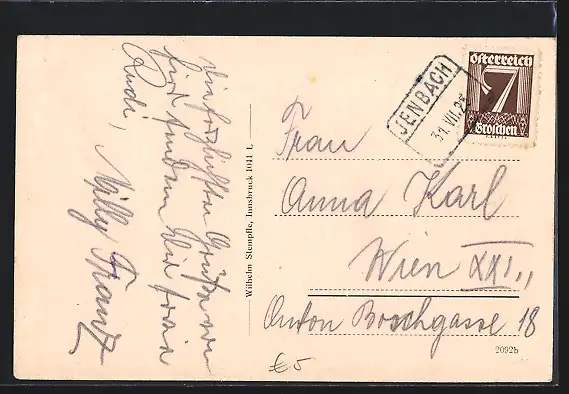 Die herzlichsten Grüße von
Rudi, Milly Franz
Wilhelm Stempfle, Innsbruck 1041 L
JENBACH
31. VII. 25
Österreich
7
Groschen
Frau
Anna Karl
Wien XXI.,
Anton Boschgasse 18
2092b
€5